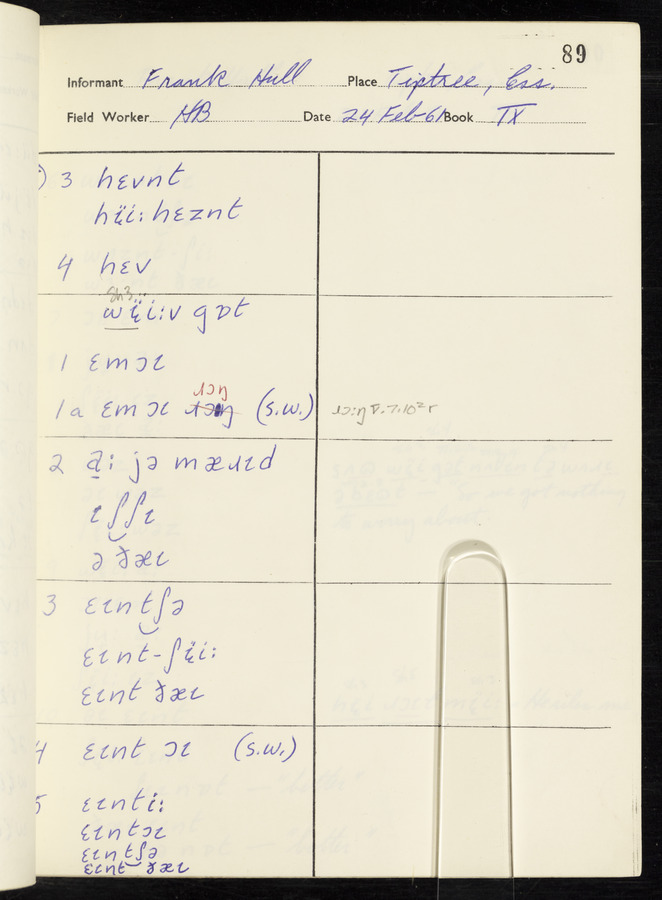 89
Informant Frank Hull Place Tiptree, Ess.
Field Worker HB Date 24 Feb-61 Book IX
3 hɛvnt
hɪ̈i: hɛznt
4 hɛv
wɪ̈i:v gɒt
1 ɛmɔɪ
1a ɛmɔɪ ɹɔŋ (s.w.)
2 ɑ̱: jə mæɹɪd
ɪʃʃɪ
ə ðæɪ
3 ɛɪntʃə
ɛɪnt-ʃɪ̈i:
ɛɪnt ðæɪ
4 ɛɪnt ɔɪ (s.w.)
5 ɛɪnti:
ɛɪntɔɪ
ɛɪntʃə
ɛɪnt ðæɪ